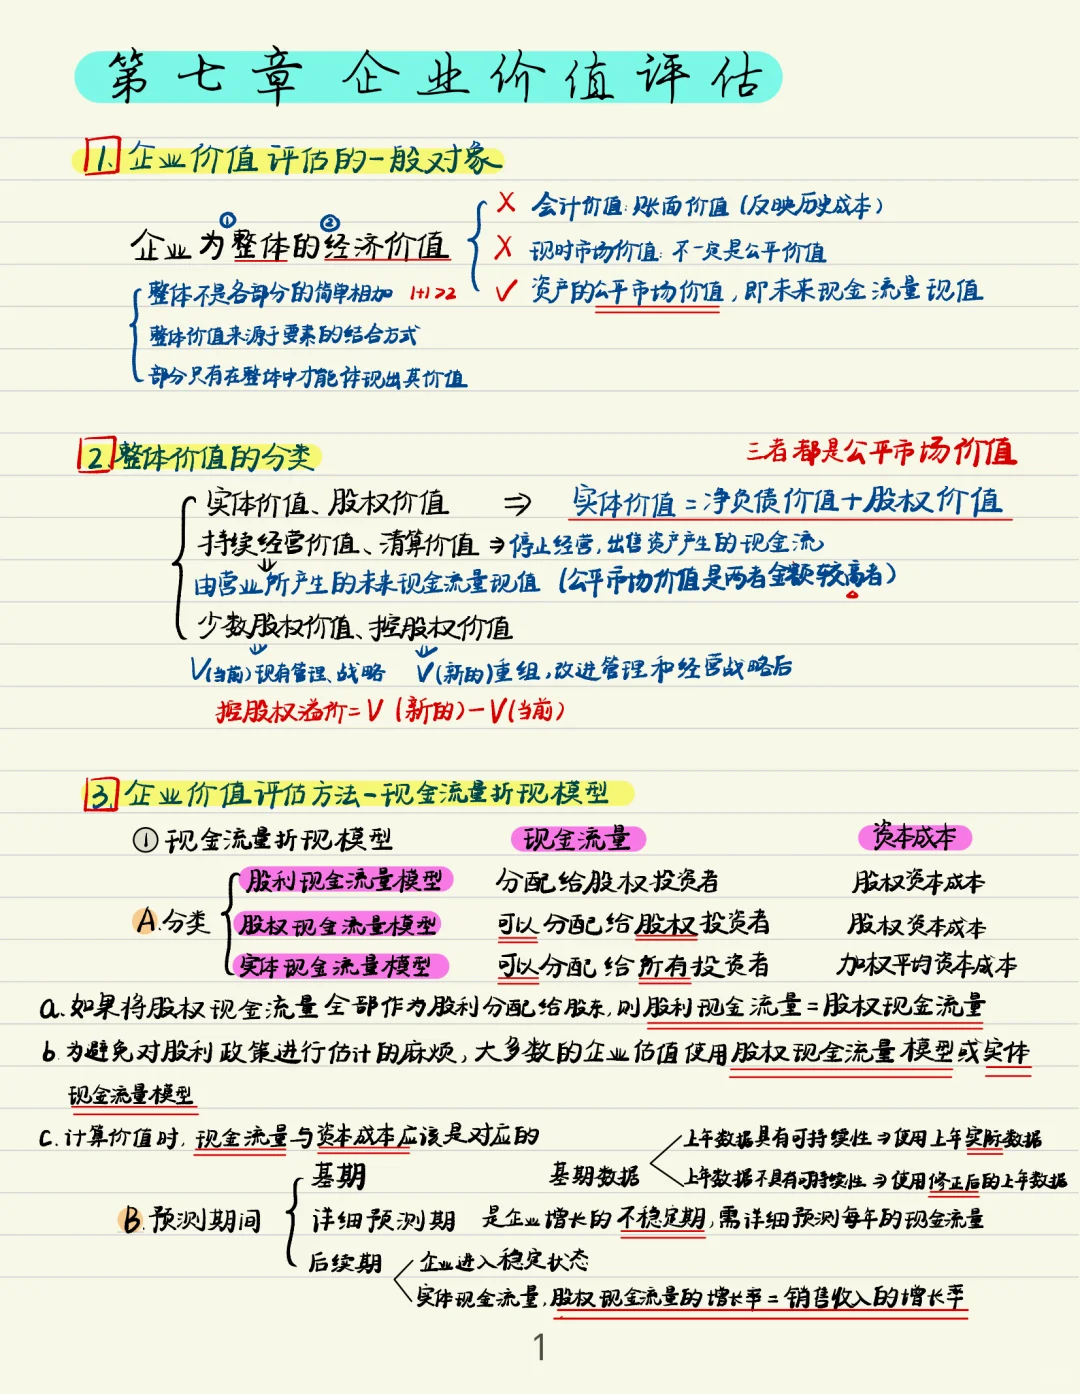 第七章 企业价值评估
1. 企业价值评估的一般对象
① ②
企业为整体的经济价值
✗ 会计价值:账面价值(反映历史成本)
✗ 现时市场价值:不一定是公平价值
✓ 资产的公平市场价值,即未来现金流量现值
整体不是各部分的简单相加 1+1>2
整体价值来源于要素的结合方式
部分只有在整体中才能体现出其价值
2. 整体价值的分类
三者都是公平市场价值
实体价值、股权价值 ⇒ 实体价值=净负债价值+股权价值
持续经营价值、清算价值 → 停止经营,出售资产产生的现金流
由营业所产生的未来现金流量现值 (公平市场价值是两者金额较高者)
少数股权价值、控股权价值
V(当前)现有管理、战略 V(新的)重组,改进管理和经营战略后
控股权溢价=V(新的)-V(当前)
3. 企业价值评估方法-现金流量折现模型
①现金流量折现模型 现金流量 资本成本
股利现金流量模型 分配给股权投资者 股权资本成本
A.分类 股权现金流量模型 可以分配给股权投资者 股权资本成本
实体现金流量模型 可以分配给所有投资者 加权平均资本成本
a.如果将股权现金流量全部作为股利分配给股东,则股利现金流量=股权现金流量
b.为避免对股利政策进行估计的麻烦,大多数的企业估值使用股权现金流量模型或实体
现金流量模型
c.计算价值时,现金流量与资本成本应该是对应的
B.预测期间
基期 基期数据
上年数据具有可持续性⇒使用上年实际数据
上年数据不具有可持续性⇒使用修正后的上年数据
详细预测期 是企业增长的不稳定期,需详细预测每年的现金流量
后续期
企业进入稳定状态
实体现金流量,股权现金流量的增长率=销售收入的增长率
1